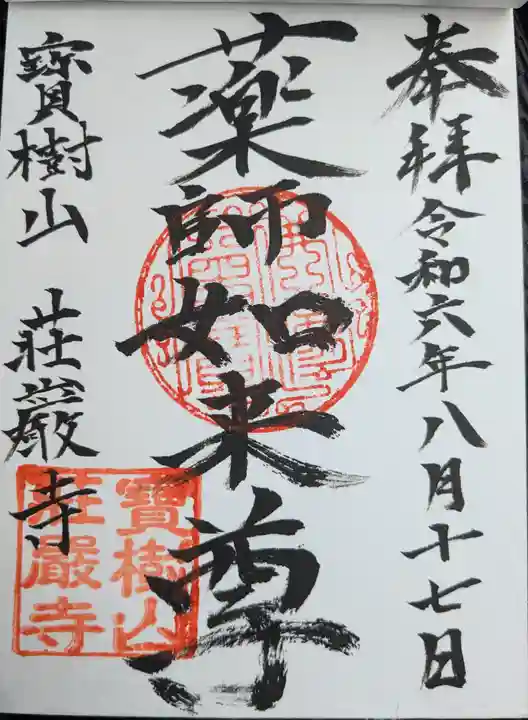 奉拝 令和六年八月十七日
薬師如来尊
寳樹山 荘巌寺
寳樹山
荘嚴寺